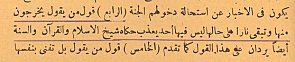 يكون فى الاخبار عن استحالة دخولهم الجنة (الرابع) قول من يقول يخرجون
منها وتبقى نارا على حالها ليس فيها أحد يعذب حكاه شيخ الاسلام والقرآن والسنة
أيضا يردان على هذا القول كما تقدم (الخامس) قول من يقول بل تفنى بنفسها